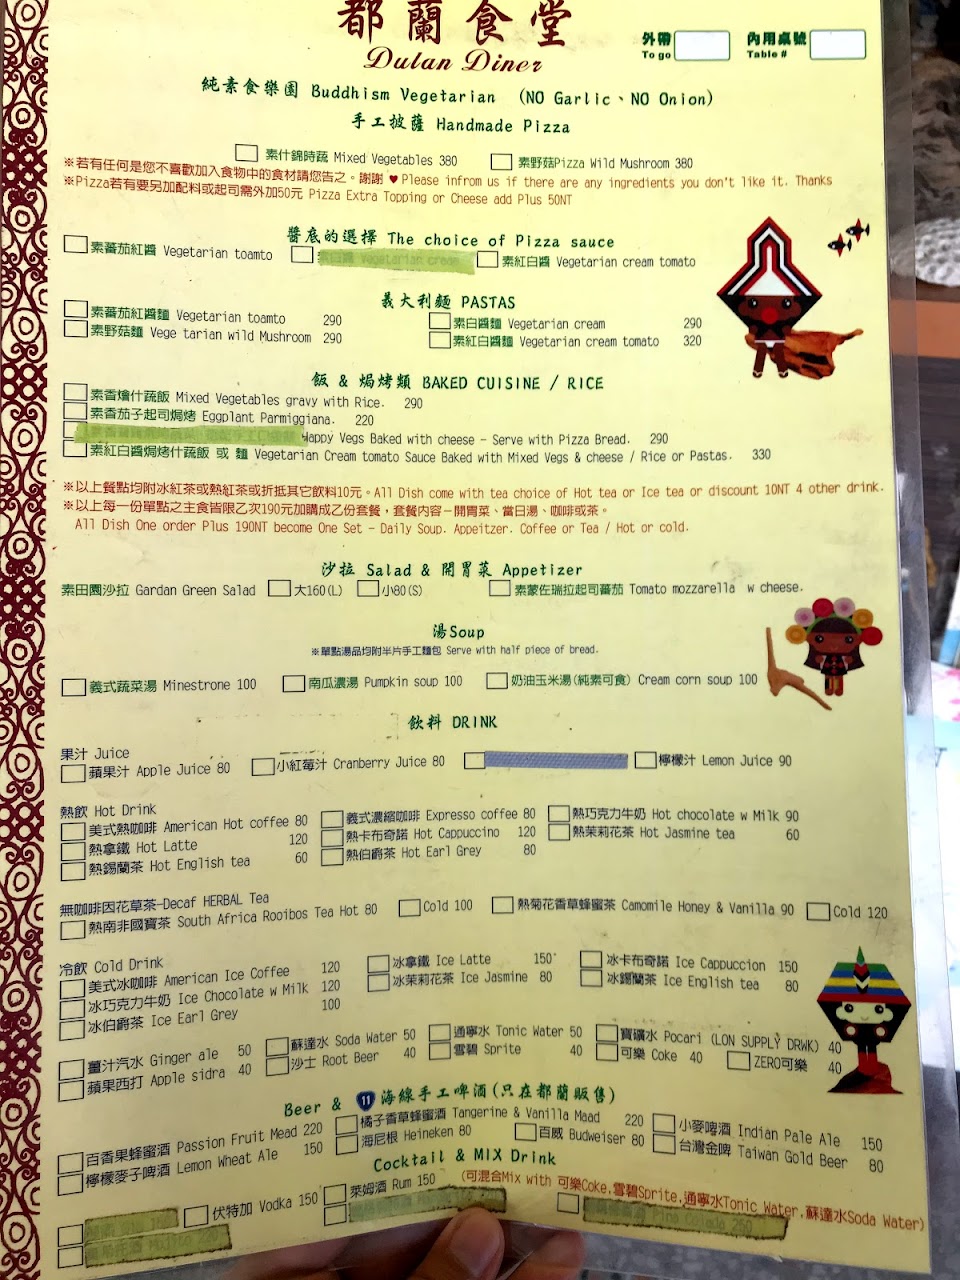 都蘭食堂
Dulan Diner
外帶 To go
內用桌號 Table #
純素食樂園 Buddhism Vegetarian (NO Garlic、NO Onion)
手工披薩 Handmade Pizza
素什錦時蔬 Mixed Vegetables 380 素野菇Pizza Wild Mushroom 380
※若有任何是您不喜歡加入食物中的食材請您告之。謝謝 ♥ Please infrom us if there are any ingredients you don't like it. Thanks
※Pizza若有要另加配料或起司需外加50元 Pizza Extra Topping or Cheese add Plus 50NT
醬底的選擇 The choice of Pizza sauce
素蕃茄紅醬 Vegetarian toamto 素白醬 Vegetarian cream 素紅白醬 Vegetarian cream tomato
義大利麵 PASTAS
素蕃茄紅醬麵 Vegetarian toamto 290 素白醬麵 Vegetarian cream 290
素野菇麵 Vege tarian wild Mushroom 290 素紅白醬麵 Vegetarian cream tomato 320
飯 & 焗烤類 BAKED CUISINE / RICE
素香燴什蔬飯 Mixed Vegetables gravy with Rice. 290
素香茄子起司焗烤 Eggplant Parmiggiana. 220
Happy Vegs Baked with cheese - Serve with Pizza Bread. 290
素紅白醬焗烤什蔬飯 或 麵 Vegetarian Cream tomato Sauce Baked with Mixed Vegs & cheese / Rice or Pastas. 330
※以上餐點均附冰紅茶或熱紅茶或折抵其它飲料10元。All Dish come with tea choice of Hot tea or Ice tea or discount 10NT 4 other drink.
※以上每一份單點之主食皆限乙次190元加購成乙份套餐，套餐內容-開胃菜、當日湯、咖啡或茶。
All Dish One order Plus 190NT become One Set - Daily Soup. Appeitzer. Coffee or Tea / Hot or cold.
沙拉 Salad & 開胃菜 Appetizer
素田園沙拉 Gardan Green Salad 大160(L) 小80(S) 素蒙佐瑞拉起司蕃茄 Tomato mozzarella w cheese.
湯Soup
※單點湯品均附半片手工麵包 Serve with half piece of bread.
義式蔬菜湯 Minestrone 100 南瓜濃湯 Pumpkin soup 100 奶油玉米湯(純素可食) Cream corn soup 100
飲料 DRINK
果汁 Juice
蘋果汁 Apple Juice 80 小紅莓汁 Cranberry Juice 80 檸檬汁 Lemon Juice 90
熱飲 Hot Drink
美式熱咖啡 American Hot coffee 80 義式濃縮咖啡 Expresso coffee 80 熱巧克力牛奶 Hot chocolate w Milk 90
熱拿鐵 Hot Latte 120 熱卡布奇諾 Hot Cappuccino 120 熱茉莉花茶 Hot Jasmine tea 60
熱錫蘭茶 Hot English tea 60 熱伯爵茶 Hot Earl Grey 80
無咖啡因花草茶-Decaf HERBAL Tea
熱南非國寶茶 South Africa Rooibos Tea Hot 80 Cold 100 熱菊花香草蜂蜜茶 Camomile Honey & Vanilla 90 Cold 120
冷飲 Cold Drink
美式冰咖啡 American Ice Coffee 120 冰拿鐵 Ice Latte 150 冰卡布奇諾 Ice Cappuccion 150
冰巧克力牛奶 Ice Chocolate w Milk 120 冰茉莉花茶 Ice Jasmine 80 冰錫蘭茶 Ice English tea 80
冰伯爵茶 Ice Earl Grey 100
薑汁汽水 Ginger ale 50 蘇達水 Soda Water 50 通寧水 Tonic Water 50 寶礦水 Pocari (LON SUPPLY DRWK) 40
蘋果西打 Apple sidra 40 沙士 Root Beer 40 雪碧 Sprite 40 可樂 Coke 40 ZERO可樂 40
Beer & 11 海線手工啤酒(只在都蘭販售)
百香果蜂蜜酒 Passion Fruit Mead 220 橘子香草蜂蜜酒 Tangerine & Vanilla Maad 220 小麥啤酒 Indian Pale Ale 150
檸檬麥子啤酒 Lemon Wheat Ale 150 海尼根 Heineken 80 百威 Budweiser 80 台灣金啤 Taiwan Gold Beer 80
Cocktail & MIX Drink
(可混合Mix with 可樂Coke,雪碧Sprite,通寧水Tonic Water,蘇達水Soda Water)
伏特加 Vodka 150 萊姆酒 Rum 150